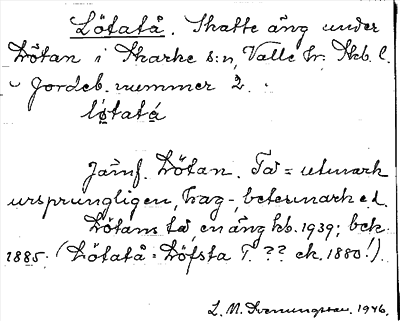 Lötatå. Skatte äng under
Lötan i Skarke s:n, Valle hr. Skb. l.
Jordeb. nummer 2.
lǿtatá
Jämf. Lötan. Tå = utmark
ursprungligen, hag-, betesmark e.d.
Lötans tå, en äng hb. 1939; bek.
1885. (Lötatå: Löfsta T. ?? ek. 1880!).
L. M. Svenungsson. 1946.